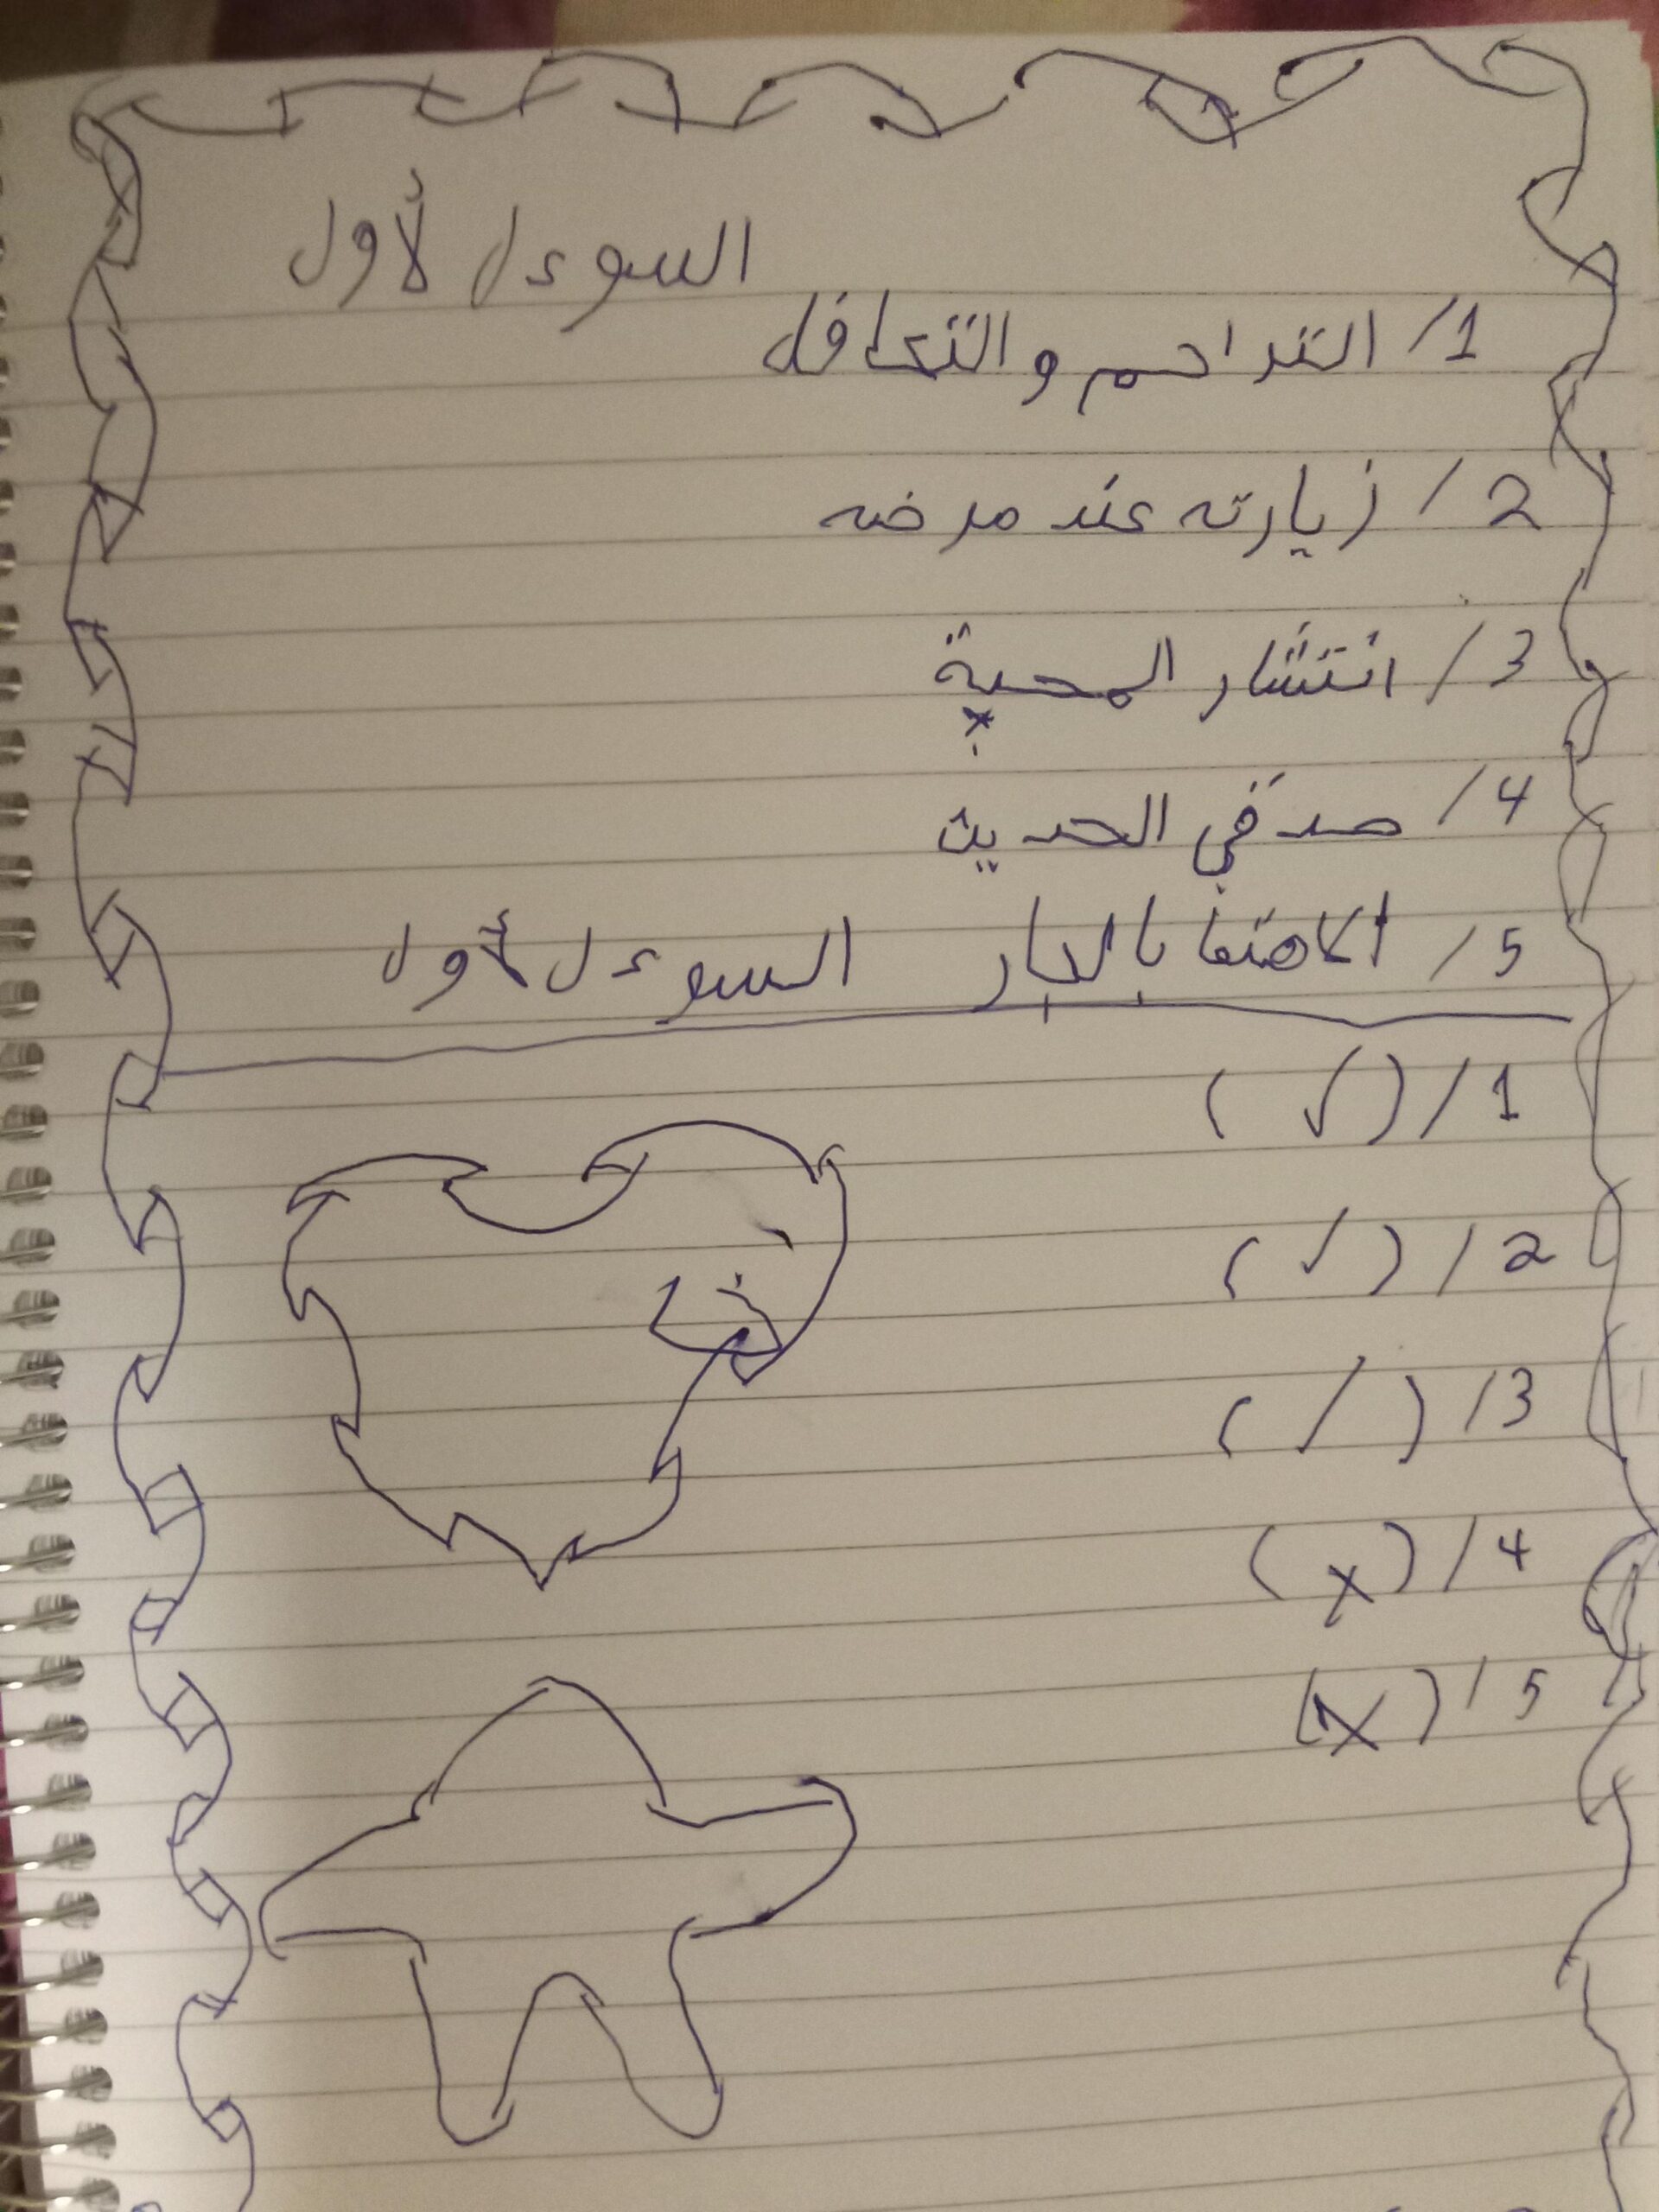 السوءل لأول
1/ التراحم والتكافل
2/ زيارته عند مرضه
3/ انتشار المحبة
4/ صدقي الحديث
5/ الاهتفا بالجار السوءل لأول
1/ (✓)
2/ (✓)
3/ (/)
4/ (x)
5/ (x)